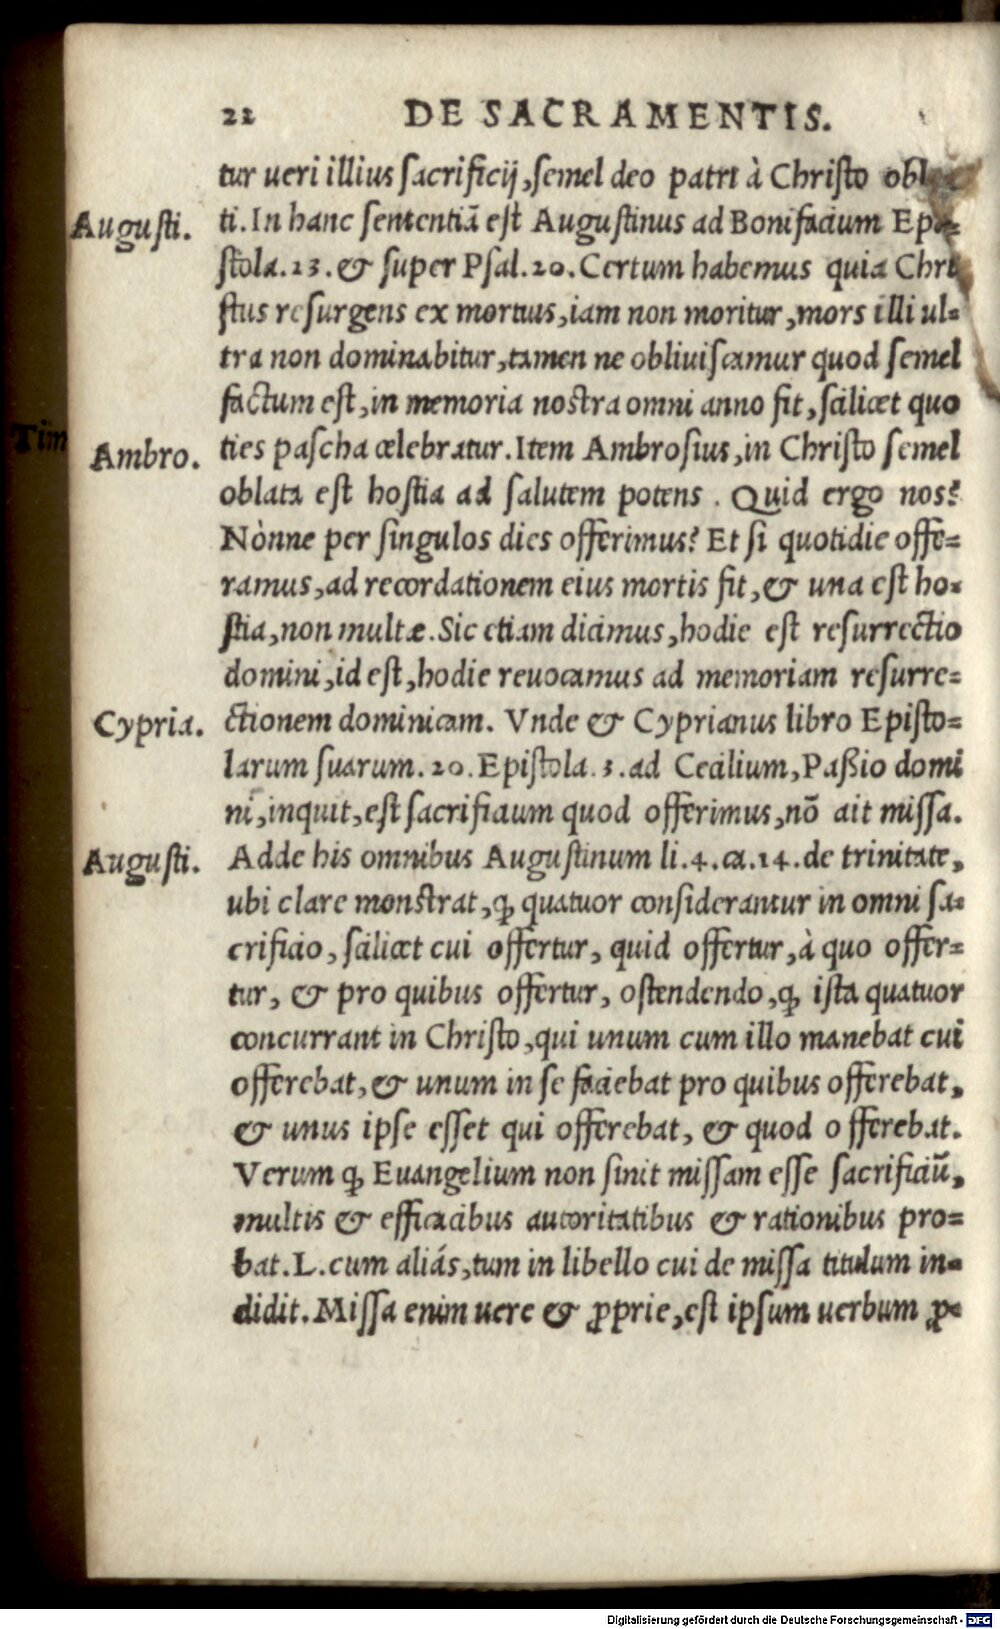 22 DE SACRAMENTIS.
tur ueri illius sacrificij, semel deo patri à Christo obla
Augusti. ti. In hanc sententiã est Augustinus ad Bonifacium Epi=
stola. 23. & super Psal. 20. Certum habemus quia Chri
stus resurgens ex mortuis, iam non moritur, mors illi ul=
tra non dominabitur, tamen ne obliuiscamur quod semel
factum est, in memoria nostra omni anno fit, scilicet quo
Ambro. ties pascha celebratur. Item Ambrosius, in Christo semel
oblata est hostia ad salutem potens. Quid ergo nos?
Nònne per singulos dies offerimus? Et si quotidie offe=
ramus, ad recordationem eius mortis fit, & una est ho=
stia, non multæ. Sic etiam dicimus, hodie est resurrectio
domini, id est, hodie reuocamus ad memoriam resurre=
Cypria. ctionem dominicam. Vnde & Cyprianus libro Episto=
larum suarum. 20. Epistola. 3. ad Cecilium, Paßio domi
ni, inquit, est sacrificium quod offerimus, nõ ait missa.
Augusti. Adde his omnibus Augustinum li. 4. ca. 14. de trinitate,
ubi clare monstrat, ꝙ quatuor considerantur in omni sa=
crificio, scilicet cui offertur, quid offertur, à quo offer=
tur, & pro quibus offertur, ostendendo, ꝙ ista quatuor
concurrant in Christo, qui unum cum illo manebat cui
offerebat, & unum in se faciebat pro quibus offerebat,
& unus ipse esset qui offerebat, & quod offerebat.
Verum ꝙ Euangelium non sinit missam esse sacrificiũ,
multis & efficacibus autoritatibus & rationibus pro=
bat. L. cum aliás, tum in libello cui de missa titulum in=
didit. Missa enim uere & ꝓprie, est ipsum uerbum ꝓ=
Tim
Digitalisierung gefördert durch die Deutsche Forschungsgemeinschaft - DFG